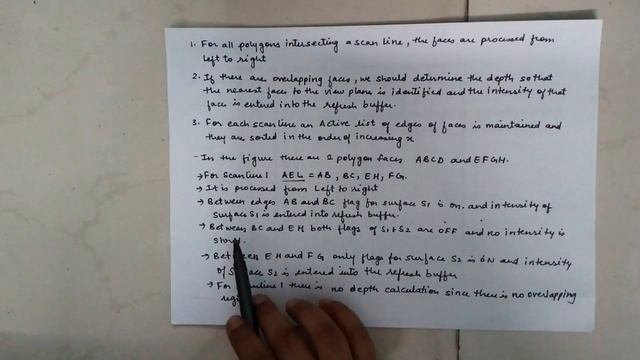 1. For all polygons intersecting a scan line, the faces are processed from
left to right
2. If there are overlapping faces, we should determine the depth so that
the nearest face to the view plane is identified and the intensity of that
face is entered into the refresh buffer.
3. For each scanline an Active list of edges of faces is maintained and
they are sorted in the order of increasing x
- In the figure there are 2 polygon faces ABCD and EFGH.
→ For Scanline 1 AEL = AB, BC, EH, FG.
→ It is processed from Left to right
→ Between edges AB and BC flag for surface S1 is on. and intensity of
surface S1 is entered into refresh buffer.
→ Between BC and EH both flags of S1 & S2 are OFF and no intensity is
→ Between EH and FG only flags for surface S2 is ON and intensity
of Surface S2 is entered into the refresh buffer
→ For Scanline 1 there is no depth calculation since there is no overlapping